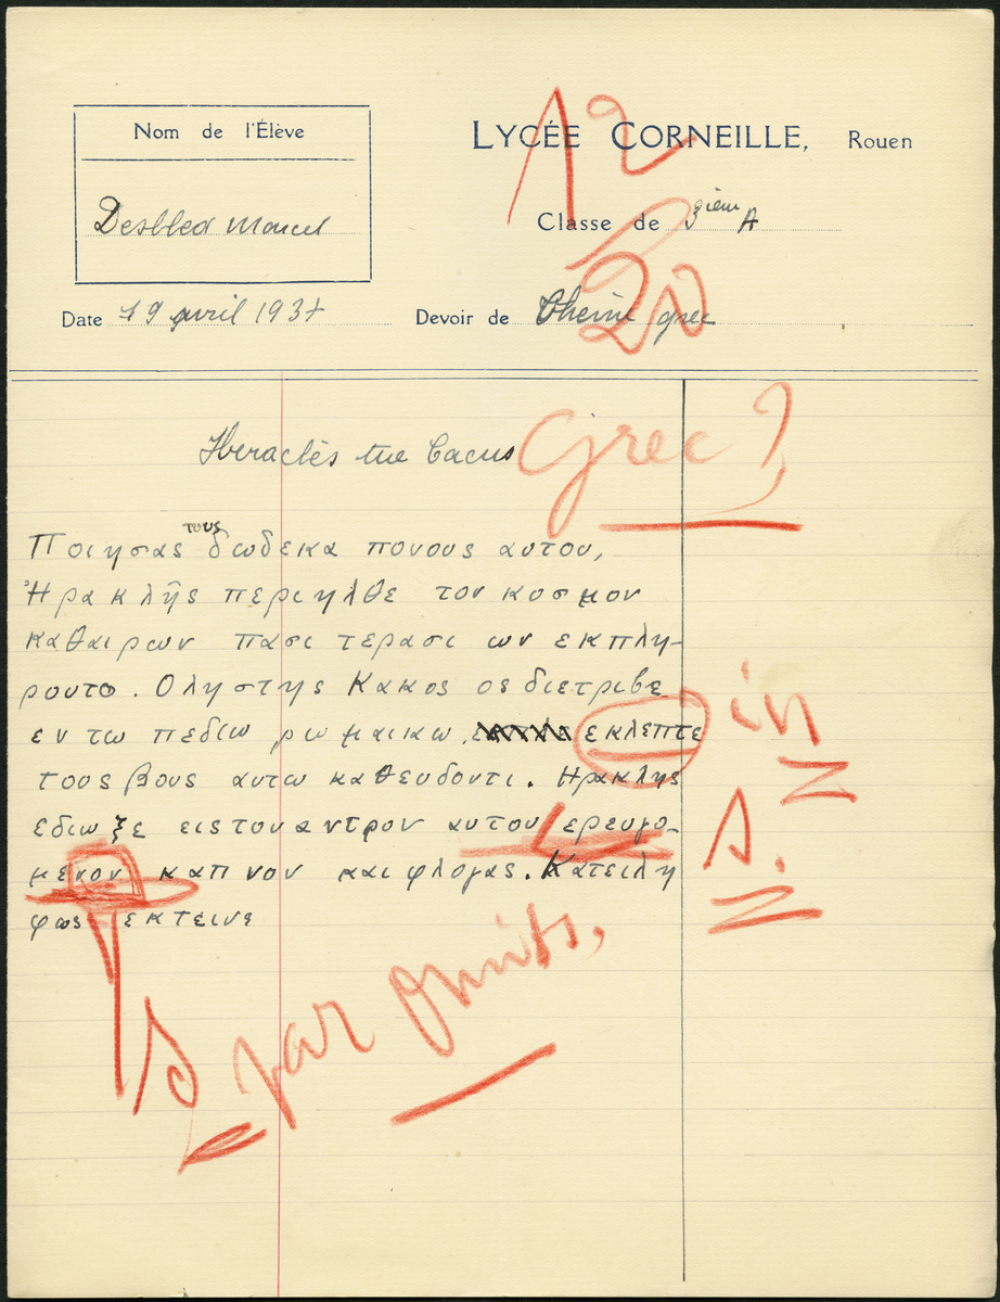 Nom de l'Élève
LYCÉE CORNEILLE, Rouen
12
20
Classe de 3ième A
Desbled Marcel
Date 19 avril 1937
Devoir de Thème grec
Heraclès tue Cacus
Grec ?
τους
Ποιησας δωδεκα πονους αυτου,
Ἡρακλῆς περιηλθε τον κοσμον
καθαιρων πασι τερασι ων εκπλη-
ρουτο. Ο ληστης Κακος ος διετριβε
εν τω πεδιω ρωμαικω, εκλεπτε
τους βους αυτω καθευδοντι. Ηρακλης
εδιωξε εις τον αντρον αυτου ερευγο-
μενον καπνον και φλογας. Κατειλη
φως εκτεινε